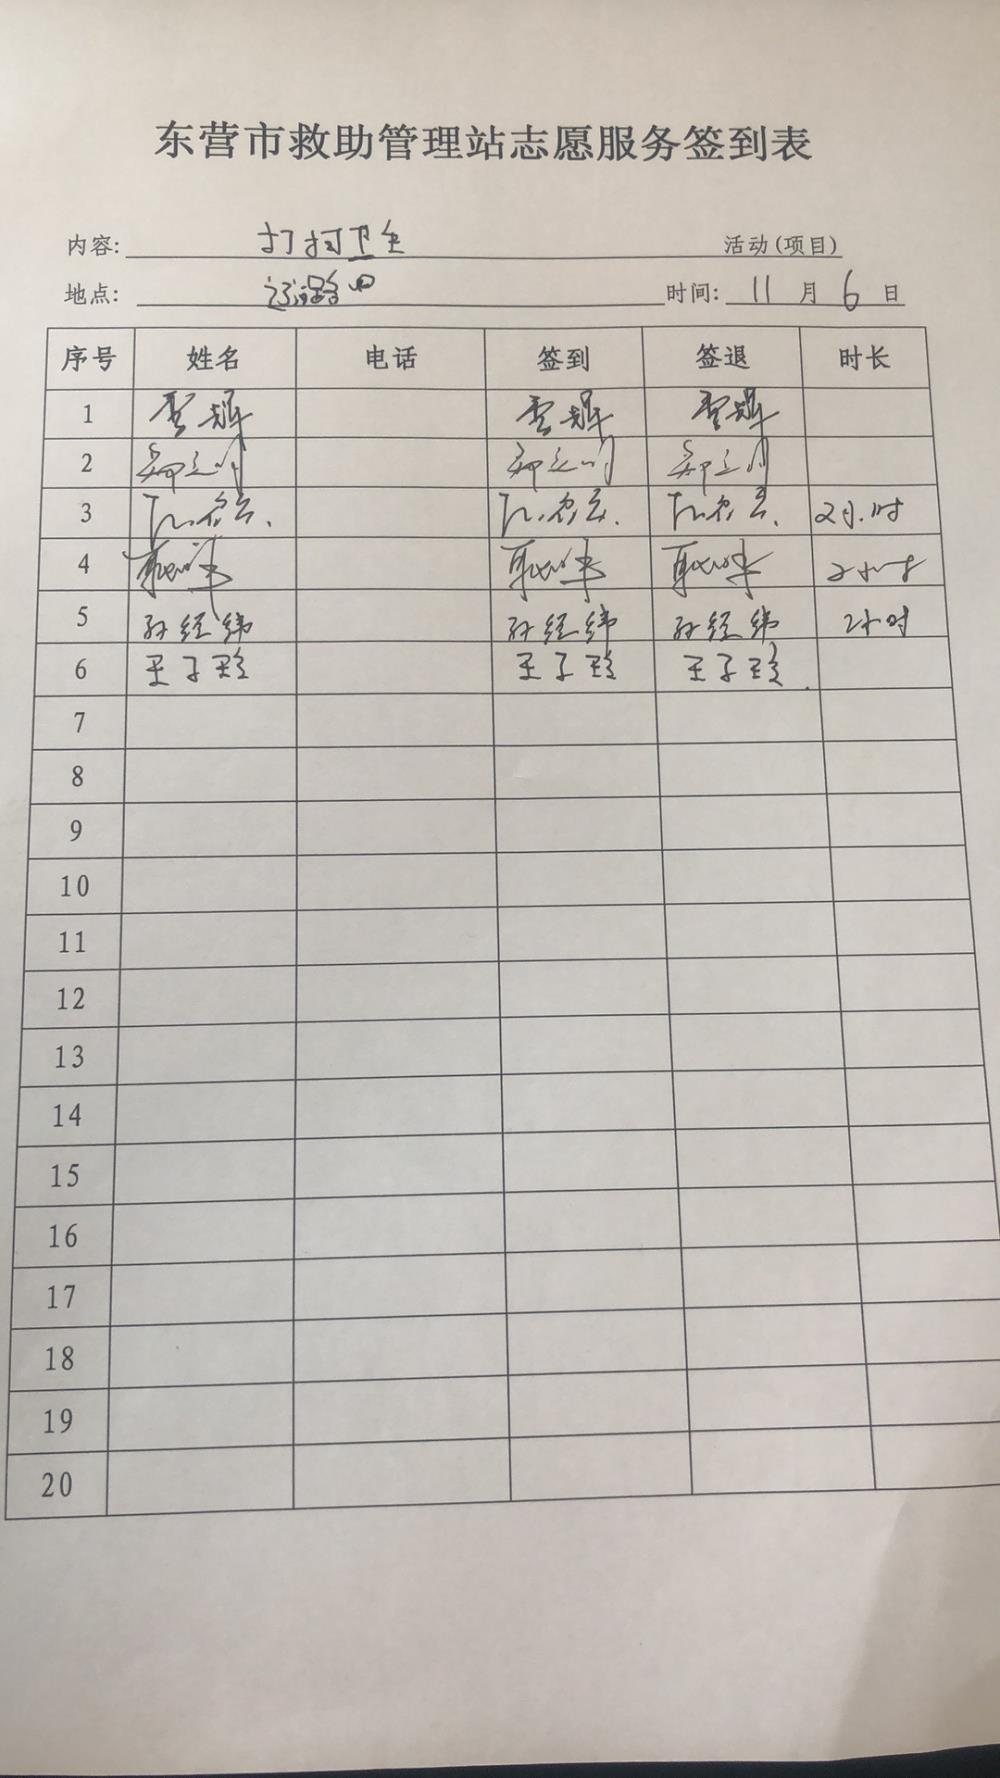 东营市救助管理站志愿服务签到表
内容: 打扫卫生 活动(项目)
地点: 时间: 11 月 6 日
序号 姓名 电话 签到 签退 时长
1
2
3 2小时
4 2小时
5 孙经纬 孙经纬 孙经纬 2小时
6 王子玲 王子玲 王子玲
7
8
9
10
11
12
13
14
15
16
17
18
19
20